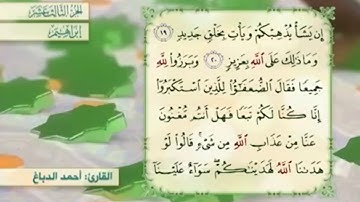 الجزء الثالث عشر
إبراهيم
إِن يَشَأْ يُذْهِبْكُمْ وَيَأْتِ بِخَلْقٍ جَدِيدٍ ١٩
وَمَا ذَٰلِكَ عَلَى ٱللَّهِ بِعَزِيزٍ ٢٠ وَبَرَزُوا۟ لِلَّهِ
جَمِيعًا فَقَالَ ٱلضُّعَفَٰٓؤُا۟ لِلَّذِينَ ٱسْتَكْبَرُوٓا۟
إِنَّا كُنَّا لَكُمْ تَبَعًا فَهَلْ أَنتُم مُّغْنُونَ
عَنَّا مِنْ عَذَابِ ٱللَّهِ مِن شَىْءٍ ۚ قَالُوا۟ لَوْ
هَدَىٰنَا ٱللَّهُ لَهَدَيْنَٰكُمْ ۖ سَوَآءٌ عَلَيْنَآ
القارئ: أحمد الدباغ